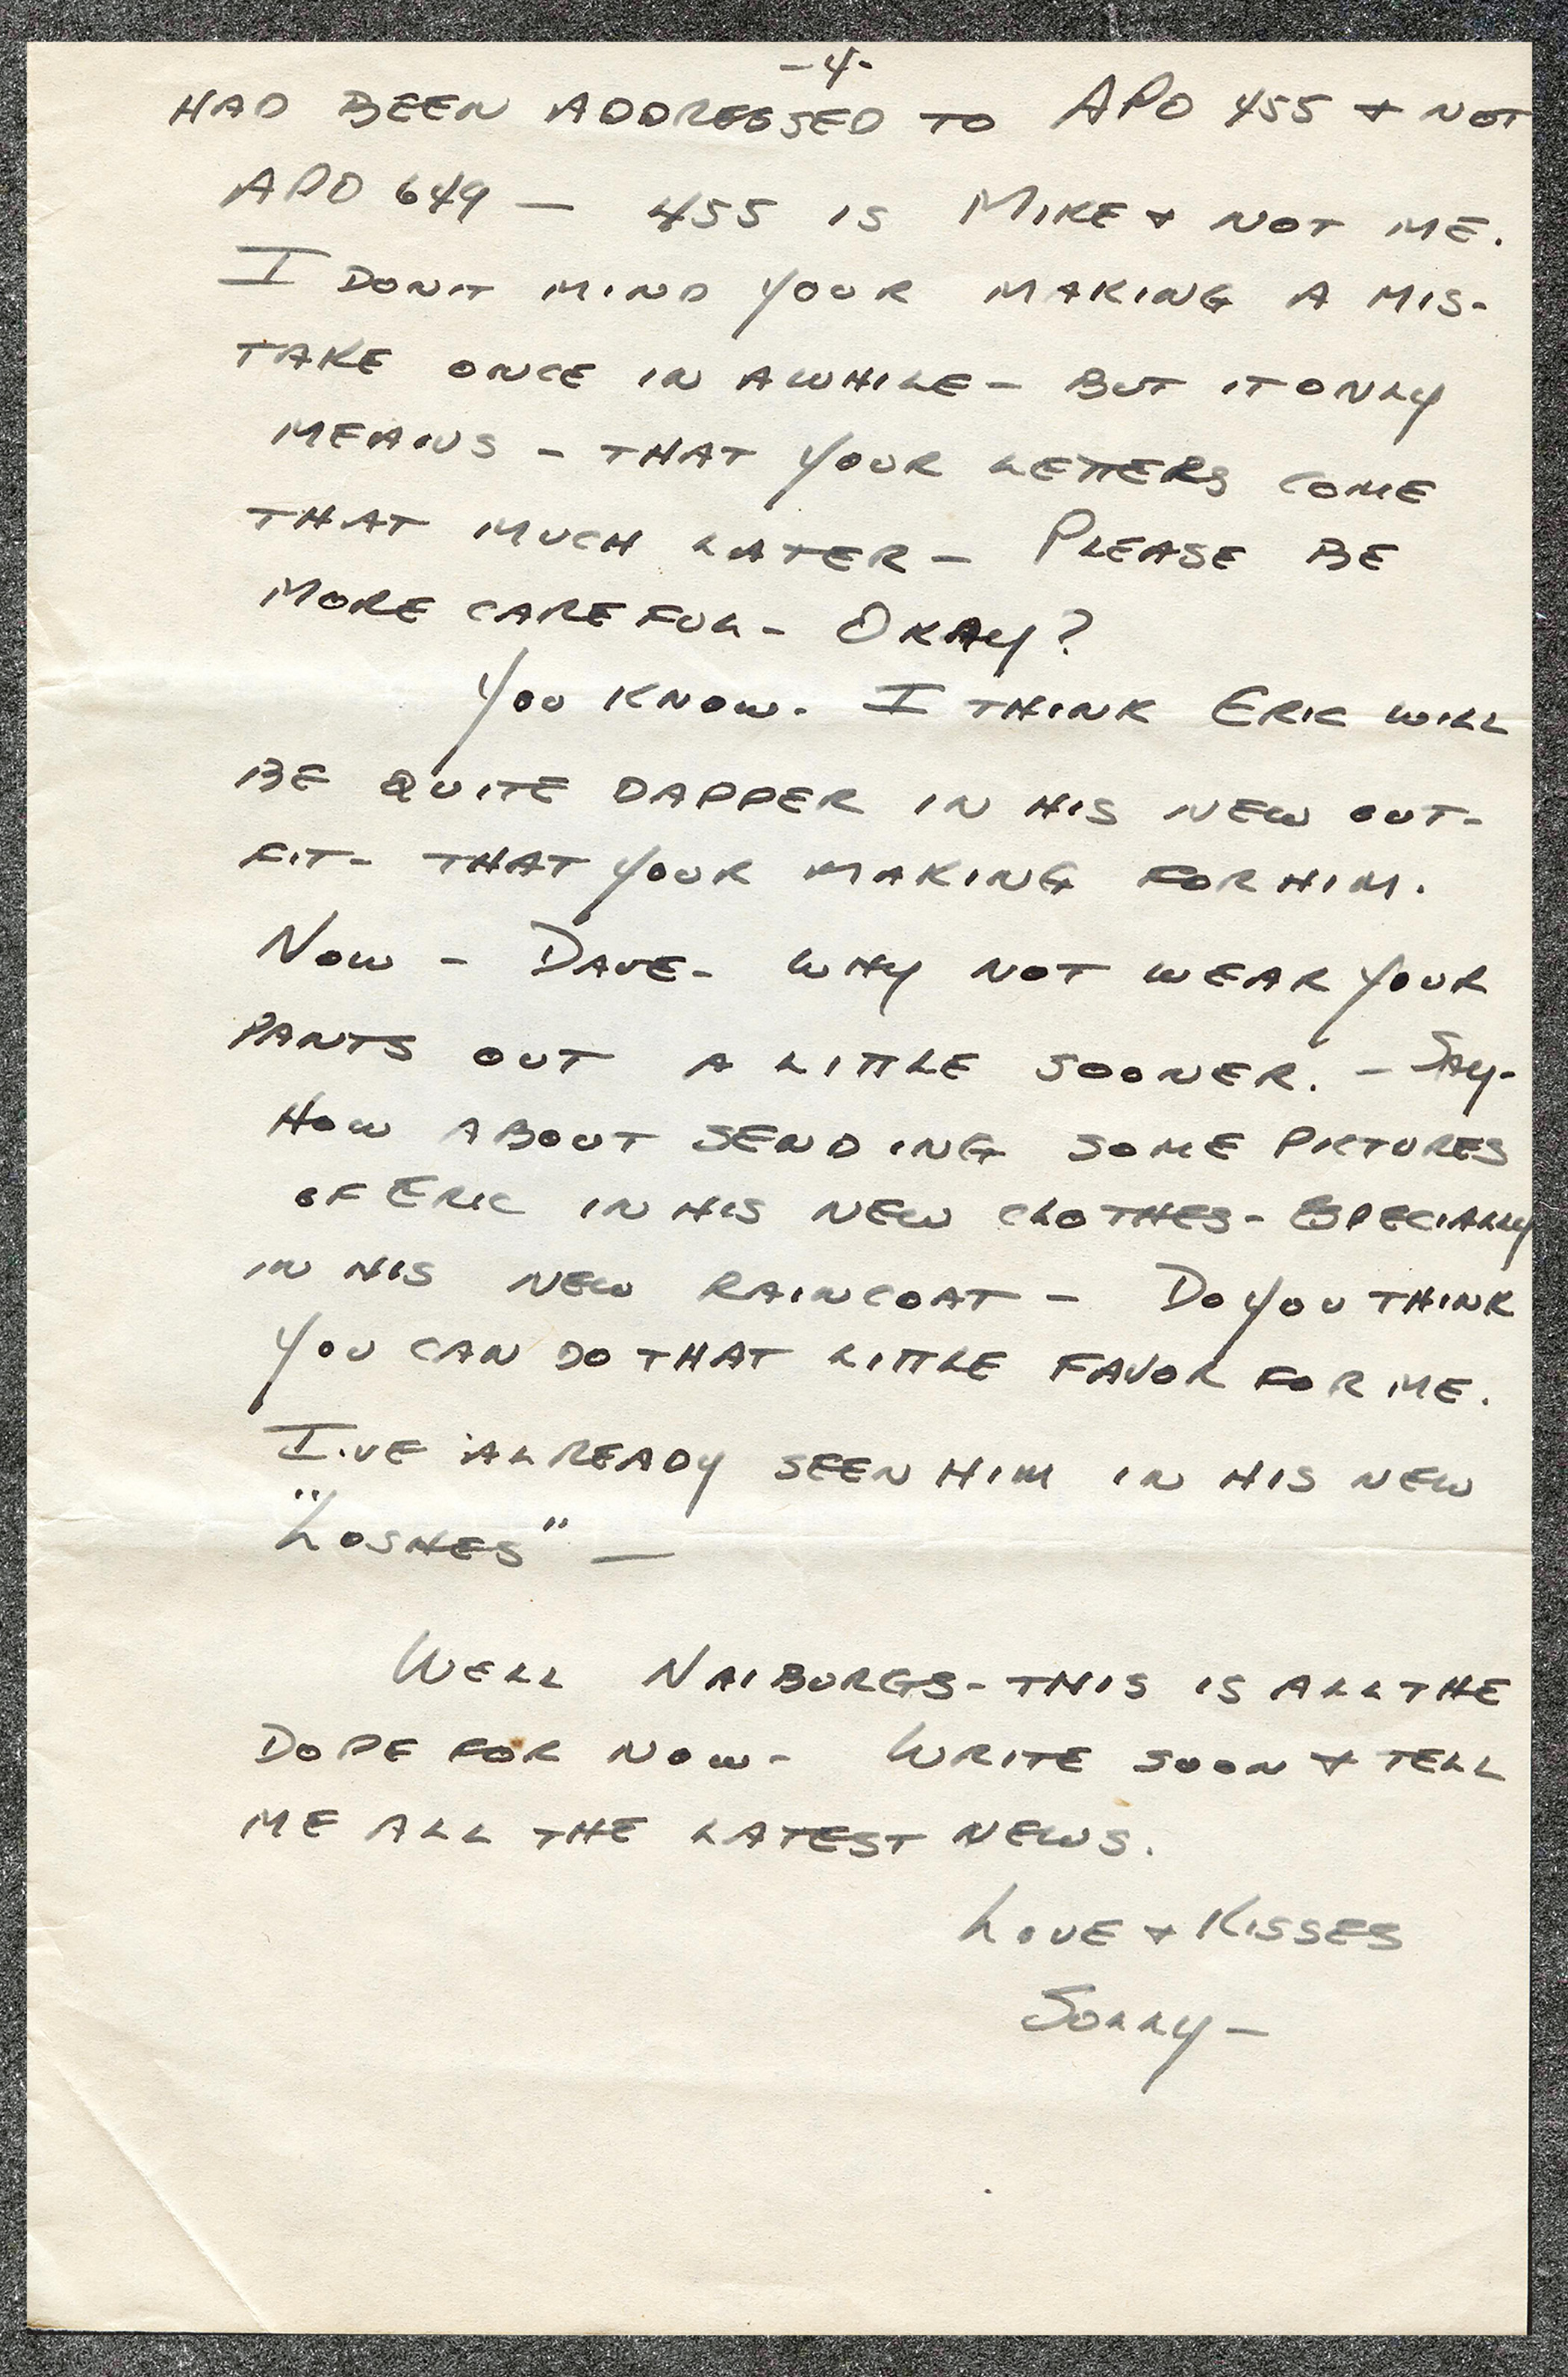 -4-
HAD BEEN ADDRESSED TO APO 455 & NOT
APO 649 — 455 IS MIKE & NOT ME.
I DON'T MIND YOUR MAKING A MIS-
TAKE ONCE IN AWHILE - BUT IT ONLY
MEANS - THAT YOUR LETTERS COME
THAT MUCH LATER - PLEASE BE
MORE CAREFUL - OKAY?
YOU KNOW. I THINK ERIC WILL
BE QUITE DAPPER IN HIS NEW OUT-
FIT - THAT YOUR MAKING FOR HIM.
NOW - DAVE - WHY NOT WEAR YOUR
PANTS OUT A LITTLE SOONER. - SAY -
HOW ABOUT SENDING SOME PICTURES
OF ERIC IN HIS NEW CLOTHES - ESPECIALLY
IN HIS NEW RAINCOAT - DO YOU THINK
YOU CAN DO THAT LITTLE FAVOR FOR ME.
I'VE ALREADY SEEN HIM IN HIS NEW
"LOSHES" —
WELL NAIBURGS - THIS IS ALL THE
DOPE FOR NOW - WRITE SOON & TELL
ME ALL THE LATEST NEWS.
LOVE & KISSES
SOLLY -